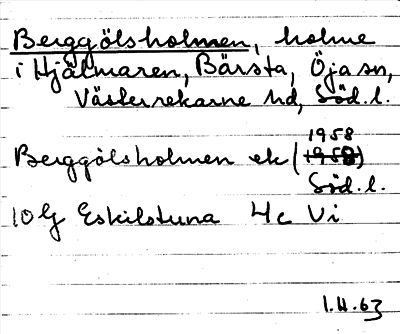 Berggölsholmen, holme
i Hjälmaren, Bärsta, Öja sn,
Västerrekarne hd, Söd. l.
1958
Berggölsholmen ek (1958)
Söd. l.
10 G Eskilstuna 4c Vi
1.4.63